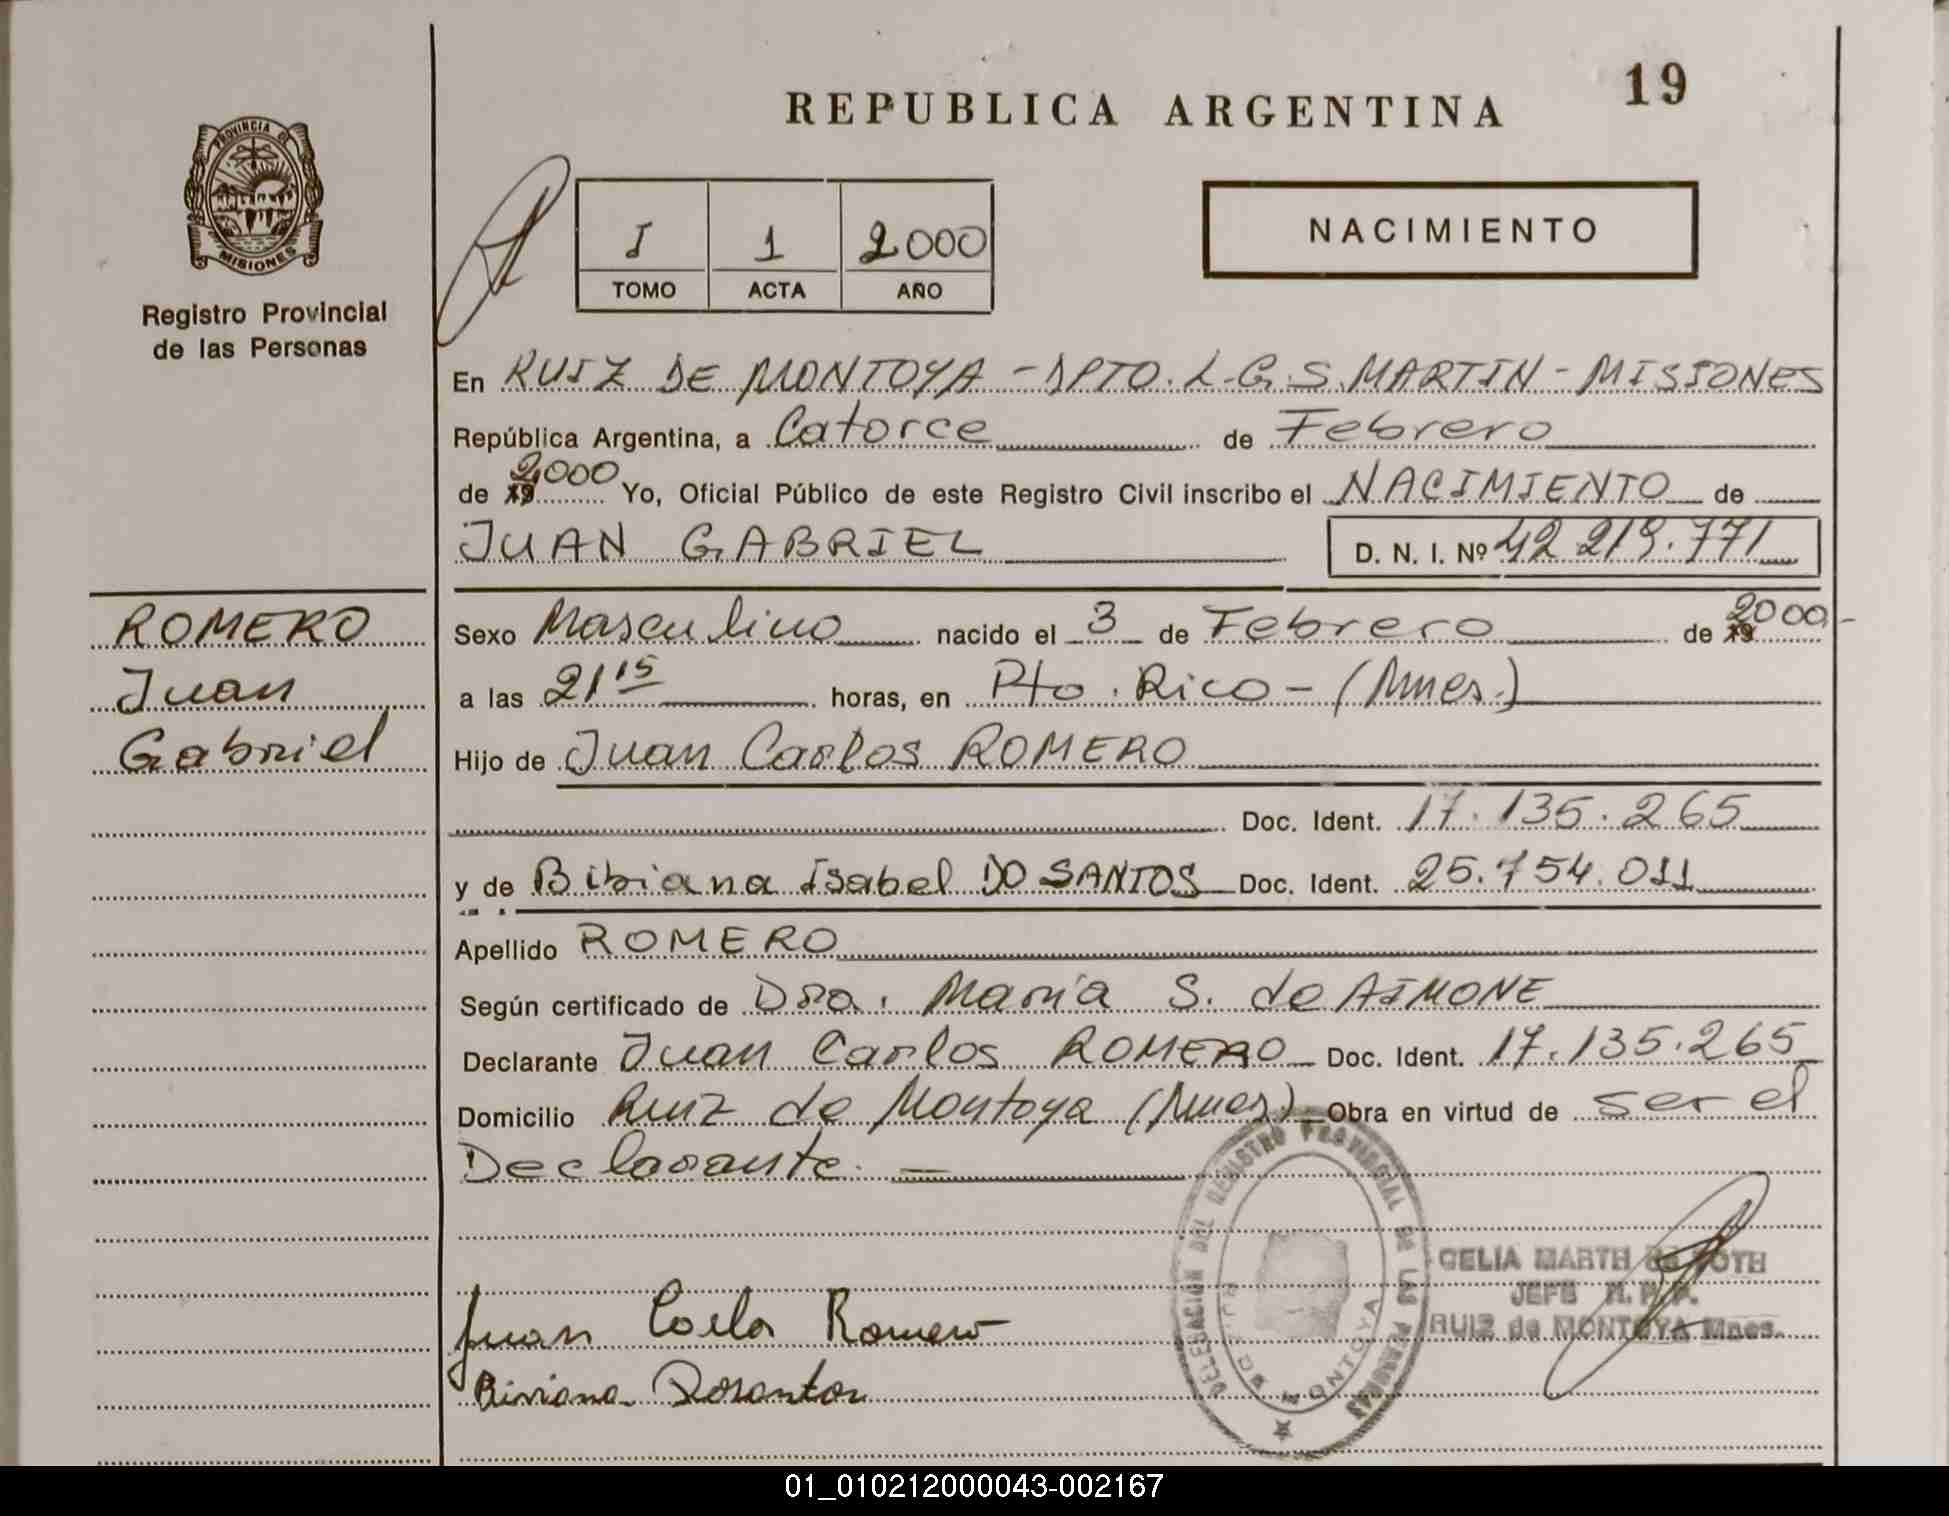 REPUBLICA ARGENTINA
19
PROVINCIA DE
MISIONES
Registro Provincial
de las Personas
I 1 2000
TOMO ACTA AÑO
NACIMIENTO
En RUIZ DE MONTOYA - DPTO. L.G.S. MARTIN - MISIONES
República Argentina, a Catorce de Febrero
de 19 2000 Yo, Oficial Público de este Registro Civil inscribo el NACIMIENTO de
JUAN GABRIEL D. N. I. Nº 42 219.771
ROMERO
Juan
Gabriel
Sexo Masculino nacido el 3 de Febrero de 19 2000.-
a las 21 15 horas, en Pto. Rico - (Mnes.)
Hijo de Juan Carlos ROMERO
Doc. Ident. 17.135.265
y de Bibiana Isabel DO SANTOS Doc. Ident. 25.754.011
Apellido ROMERO
Según certificado de Dra. María S. de AIMONE
Declarante Juan Carlos ROMERO Doc. Ident. 17.135.265
Domicilio Ruiz de Montoya (Mnes) Obra en virtud de ser el
Declarante.
DELEGACION DEL REGISTRO PROVINCIAL DE LAS PERSONAS
RUIZ DE MONTOYA
CELIA MARTH de ROTH
JEFE R.P.P.
RUIZ de MONTOYA Mnes.
Juan Carlos Romero
Biviana Dosantos
01_010212000043-002167